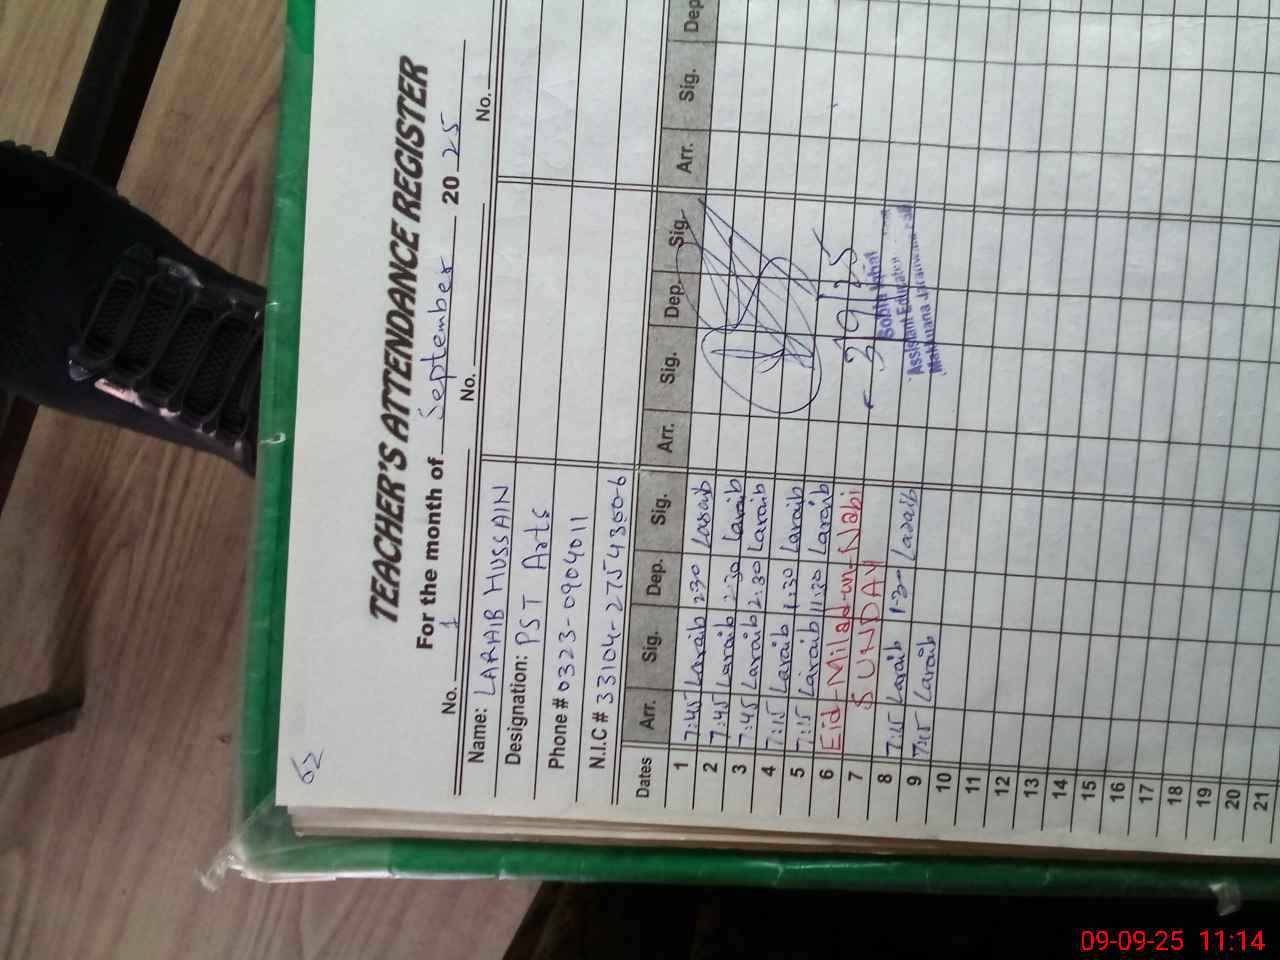 62
TEACHER'S ATTENDANCE REGISTER
For the month of September 2025
No. 1 No. No.
Name: LARAIB HUSSAIN
Designation: PST Arts
Phone # 0323-0904011
N.I.C #
Dates Arr. Sig. Dep. Sig. Arr. Sig. Dep. Sig. Arr. Sig. Dep
1 7:45 Laraib 2:30 Laraib
2 7:45 Laraib 2:30 Laraib
3 7:45 Laraib 2:30 Laraib
4 7:15 Laraib 1:30 Laraib
5 7:15 Laraib 11:30 Laraib
6 Eid-Milad-un-Nabi
7 SUNDAY
8 7:15 Laraib 1:30 Laraib
9 7:15 Laraib
Assistant Education
10
11
12
13
14
15
16
17
18
19
20
21
09-09-25 11:14